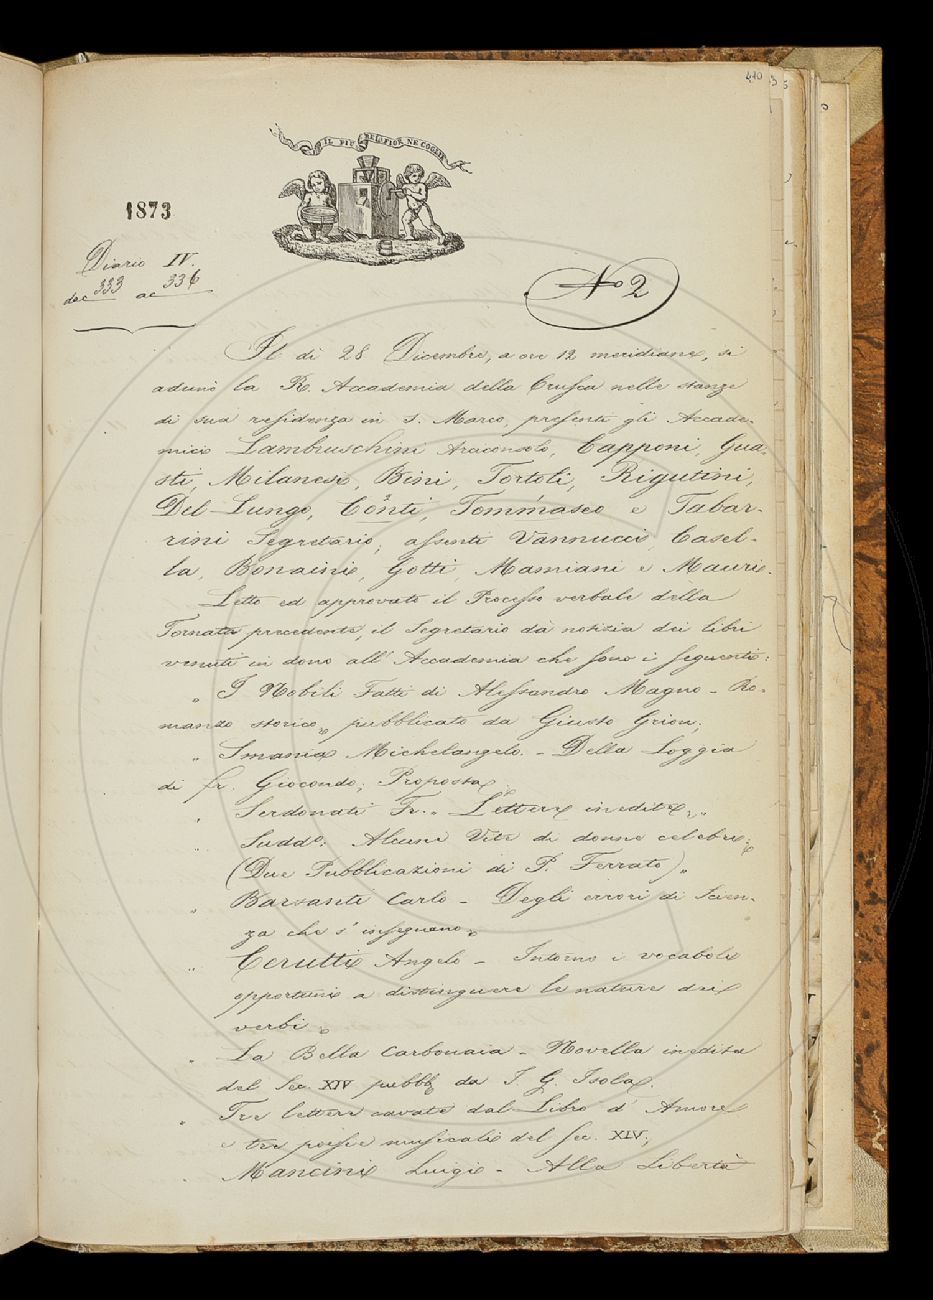 410
IL PIÙ BEL FIOR NE COGLIE
1873
Diario IV.
dac 333 ac 336
No 2
Il dì 28 Dicembre, a ore 12 meridiane, si
adunò la R. Accademia della Crusca nelle stanze
di sua residenza in S. Marco, presenti gli Accade-
mici Lambruschini Arciconsolo, Capponi, Gua-
sti, Milanesi, Bini, Tortoli, Rigutini,
Del-Lungo, Conti, Tommaseo e Tabar-
rini Segretario; assenti Vannucci, Casel-
la, Bonaini, Gotti, Mamiani e Mauri.
Letto ed approvato il Processo verbale della
Tornata precedente, il Segretario dà notizia dei libri
venuti in dono all'Accademia che sono i seguenti:
„ I Nobili Fatti di Alessandro Magno - Ro-
manzo storico, pubblicato da Giusto Grion;
„ Smania Michelangelo. - Della Loggia
di fr. Giocondo; Proposta;
„ Serdonati Fr. „ Lettere inedite;
„ Suddo: Alcune Vite di donne celebri;
(Due Pubblicazioni di P. Ferrato)„
„ Barsanti Carlo - Degli errori di Scien-
za che s'insegnano;
„ Cerutti Angelo - Intorno i vocaboli
opportuni a distinguere le nature dei
verbi;
„ La Bella Carbonaia - Novella inedita
del Sec. XIV pubb. da I. G. Isola;
„ Tre lettere cavate dal Libro d'Amore
e tre poesie musicali del sec. XIV;
„ Mancini Luigi - Alla Libertà